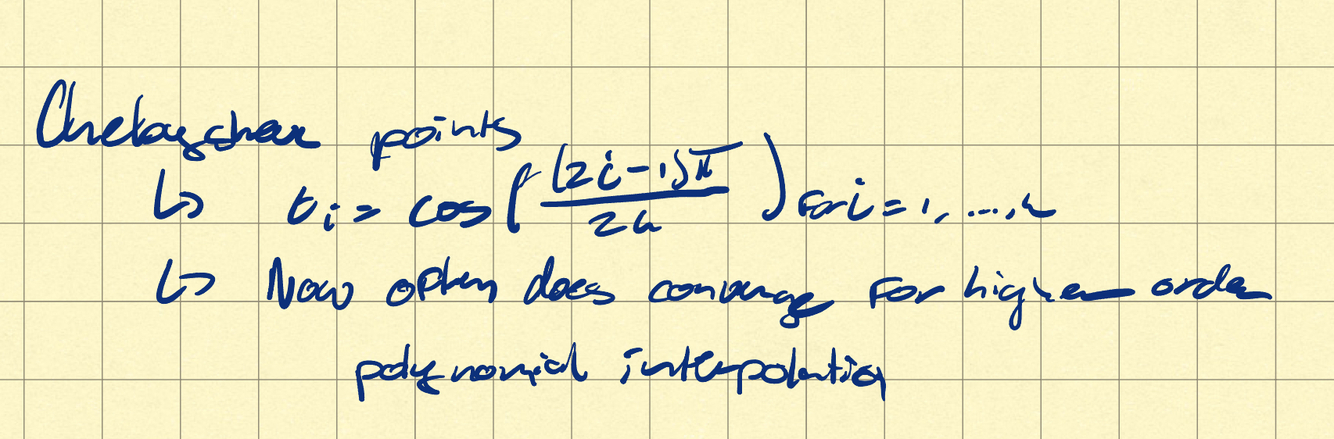 Chebyshev points
↳ t_i = cos((2i-1)π / 2n) for i = 1, ..., n
↳ Now often does converge for higher order
polynomial interpolation